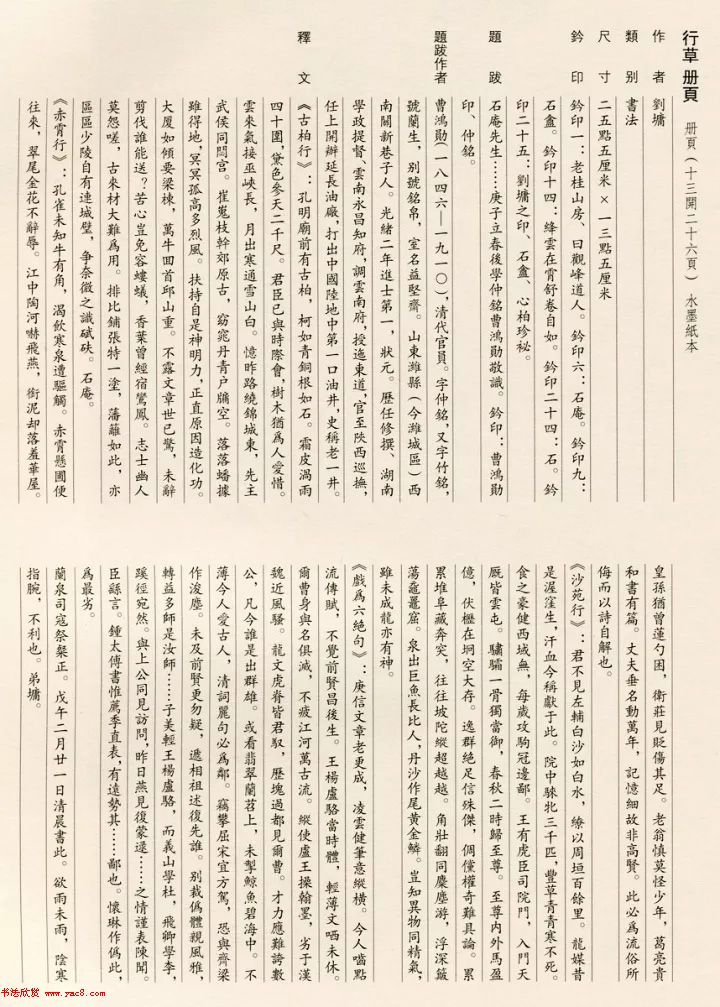 行草 册頁　册頁（十三開二十六頁）　水墨紙本
作　者　劉墉
類　別　書法
尺　寸　二五點五厘米×一三點五厘米
鈐　印　鈐印一：老桂山房、日觀峰道人。　鈐印六：石庵。　鈐印九：
石盦。　鈐印十四：絳雲在霄舒卷自如。　鈐印二十四：石。　鈐
印二十五：劉墉之印、石盦、心柏珍袐。
題　跋　石庵先生……庚子立春後學仲銘曹鴻勛敬識。　鈐印：曹鴻勛
印、仲銘。
題跋作者　曹鴻勛（一八四六—一九一〇），清代官員。字仲銘，又字竹銘，
號蘭生，别號銘帛，室名益堅齋。山東濰縣（今濰城區）西
南關新巷子人。光緒二年進士第一，狀元。歷任修撰、湖南
學政提督、雲南永昌知府，調雲南府，授迤東道，官至陝西巡撫，
任上開辦延長油廠，打出中國陸地中第一口油井，史稱老一井。
釋　文　《古柏行》：孔明廟前有古柏，柯如青銅根如石。霜皮溜雨
四十圍，黛色參天二千尺。君臣已與時際會，樹木猶爲人愛惜。
雲來氣接巫峽長，月出寒通雪山白。憶昨路繞錦城東，先主
武侯同閟宫。崔嵬枝幹郊原古，窈窕丹青户牖空。落落蟠據
雖得地，冥冥孤高多烈風。扶持自是神明力，正直原因造化功。
大厦如傾要梁棟，萬牛回首邱山重。不露文章世已驚，未辭
剪伐誰能送？苦心豈免容螻蟻，香葉曾經宿鸞鳳。志士幽人
莫怨嗟，古來材大難爲用。排比鋪張特一塗，藩籬如此，亦
區區少陵自有連城璧，争奈微之識碔砆。石庵。
《赤霄行》：孔雀未知牛有角，渴飲寒泉遭觝觸。赤霄懸圃便
往來，翠尾金花不辭辱。江中陶河嚇飛燕，銜泥却落羞華屋。
皇孫猶曾蓮勺困，衛莊見貶傷其足。老翁慎莫怪少年，葛亮貴
和書有篇。丈夫垂名動萬年，記憶細故非高賢。此必爲流俗所
侮而以詩自解也。
《沙苑行》：君不見左輔白沙如白水，繚以周垣百餘里。龍媒昔
是渥窪生，汗血今稱獻于此。院中騋牝三千匹，豐草青青寒不死。
食之豪健西域無，每歲攻駒冠邊鄙。王有虎臣司院門，入門天
厩皆雲屯。驌驦一骨獨當御，春秋二時歸至尊。至尊内外馬盈
億，伏櫪在坰空大存。逸群絶足信殊傑，倜儻權奇難具論。累
累堆阜藏奔突，往往坡陀縱超越。角壯翻同麋塵游，浮深簸
蕩黿鼉窟。泉出巨魚長比人，丹沙作尾黄金鱗。豈知異物同精氣，
雖未成龍亦有神。
《戲爲六絶句》：庾信文章老更成，凌雲健筆意縱橫。今人嗤點
流傳賦，不覺前賢昌後生。王楊盧駱當時體，輕薄文哂未休。
爾曹身與名俱滅，不疲江河萬古流。縱使盧王操翰墨，劣于漢
魏近風騷。龍文虎脊皆君馭，歷塊過都見爾曹。才力應難誇數
公，凡今誰是出群雄。或看翡翠蘭苕上，未掣鯨魚碧海中。不
薄今人愛古人，清詞麗句必爲鄰。竊攀屈宋宜方駕，恐與齊梁
作浚塵。未及前賢更勿疑，遞相祖述復先誰。别裁僞體親風雅，
轉益多師是汝師……子美輕王楊盧駱，而義山學杜，飛卿學李，
蹊徑宛然。與上公同見訪問，昨日燕見復蒙逯……之情謹表陳聞。
臣繇言。鍾太傅書惟薦季直表，有遠勢其……鄙也。懷琳作僞此，
爲最劣。
蘭泉司寇祭榘正。戊午二月廿一日清晨書此。欲雨未雨，陰寒
指腕，不利也。弟墉。
书法欣赏 www.yac8.com